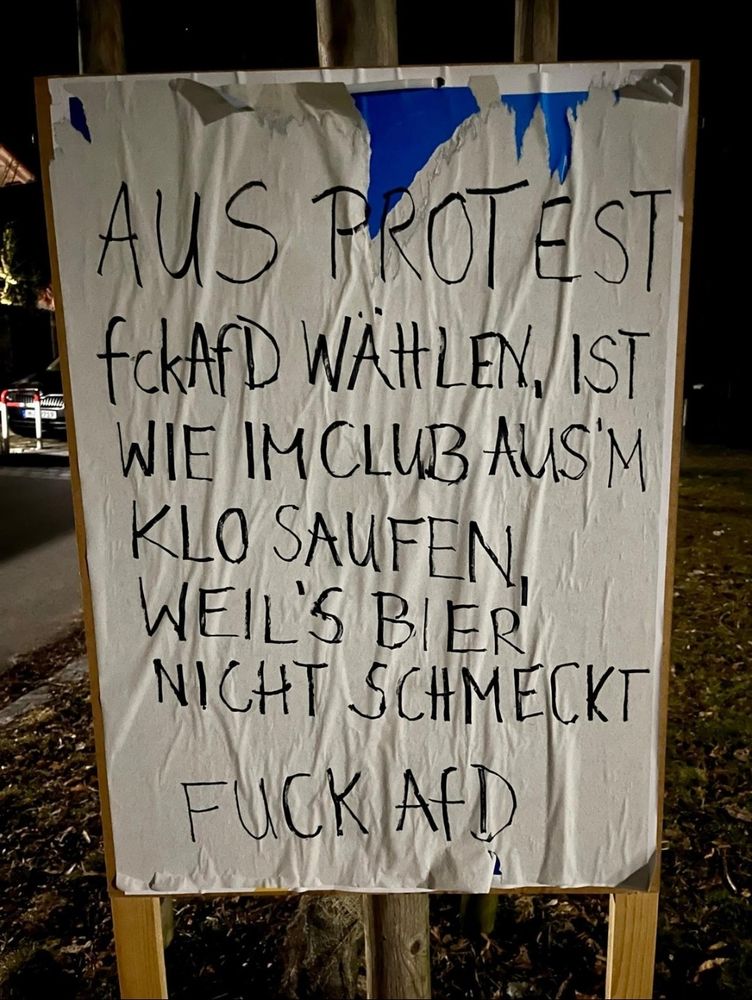 AUS PROTEST
fckAfD WÄHLEN, IST
WIE IM CLUB AUS'M
KLO SAUFEN,
WEIL'S BIER
NICHT SCHMECKT
FUCK AfD